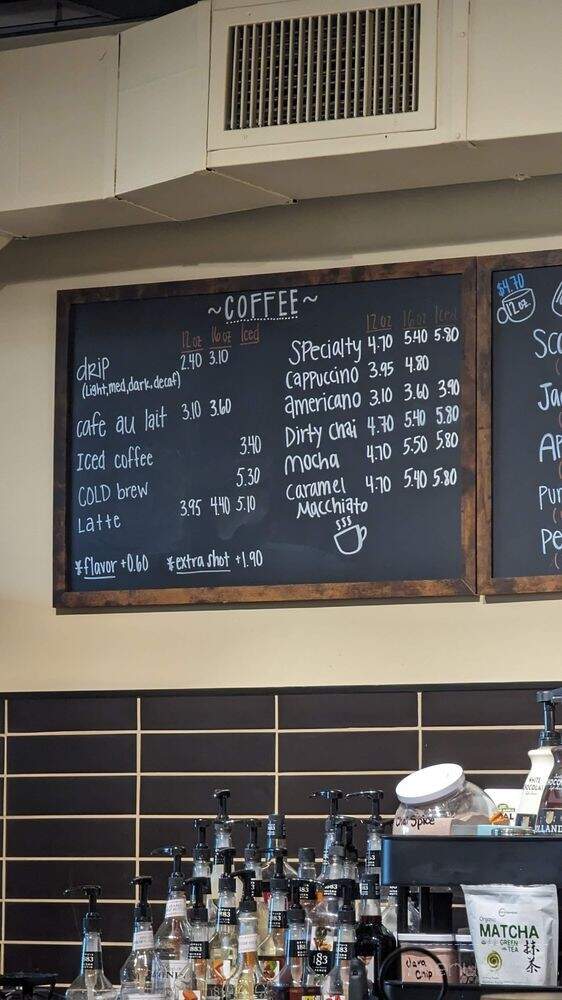 ~COFFEE~
12 oz 16 oz Iced
drip 2.40 3.10
(Light, med, dark, decaf)
cafe au lait 3.10 3.60
Iced coffee 3.40
COLD brew 5.30
Latte 3.95 4.40 5.10
*flavor +0.60 *extra shot +1.90
12 oz 16 oz Iced
Specialty 4.70 5.40 5.80
cappuccino 3.95 4.80
americano 3.10 3.60 3.90
Dirty Chai 4.70 5.40 5.80
Mocha 4.70 5.50 5.80
Caramel 4.70 5.40 5.80
Macchiato
$4.70
12 oz
Sco
Ja
AP
Pur
Pe
WHITE
Chai Spice
Organic
MATCHA
GREEN
TEA
抹茶
Java
Chip
1883